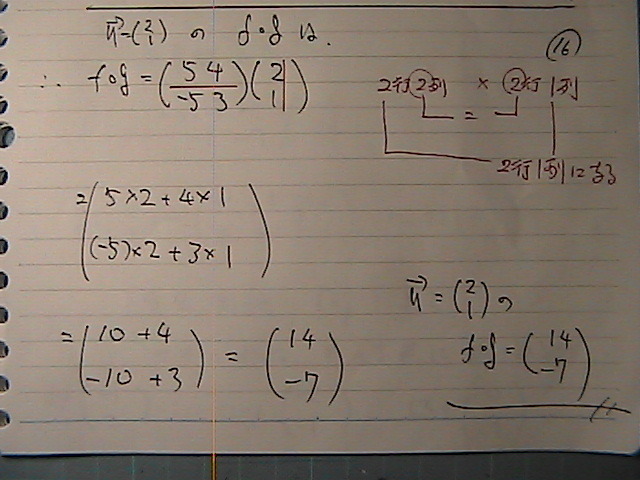 u⃗=(2 1) の f∘g は.
⑯
∴ f∘g = (5 4 -5 3)(2 1)
2行2列 × 2行1列
=
2行1列になる
= (5×2+4×1
(-5)×2+3×1)
u⃗ = (2 1) の
= (10+4 -10+3) = (14 -7)
f∘g = (14 -7)